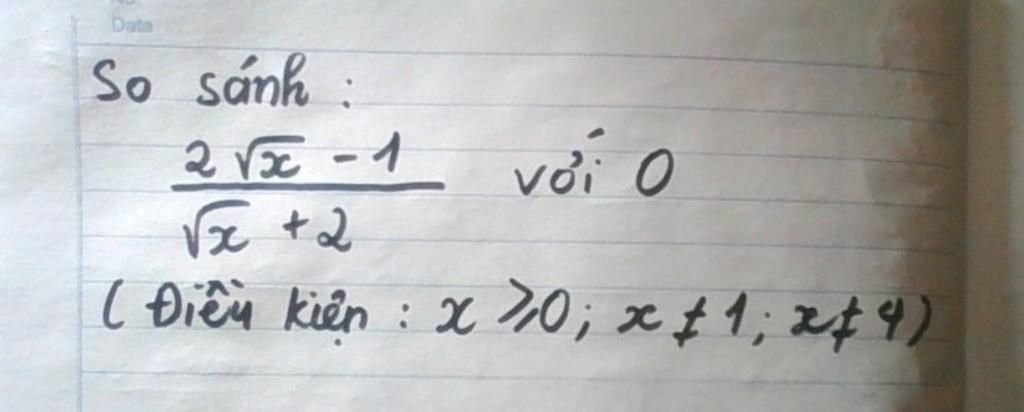 Date
So sánh :
2√x - 1
√x + 2
với 0
(Điều kiện : x ≥ 0; x ≠ 1; x ≠ 4)